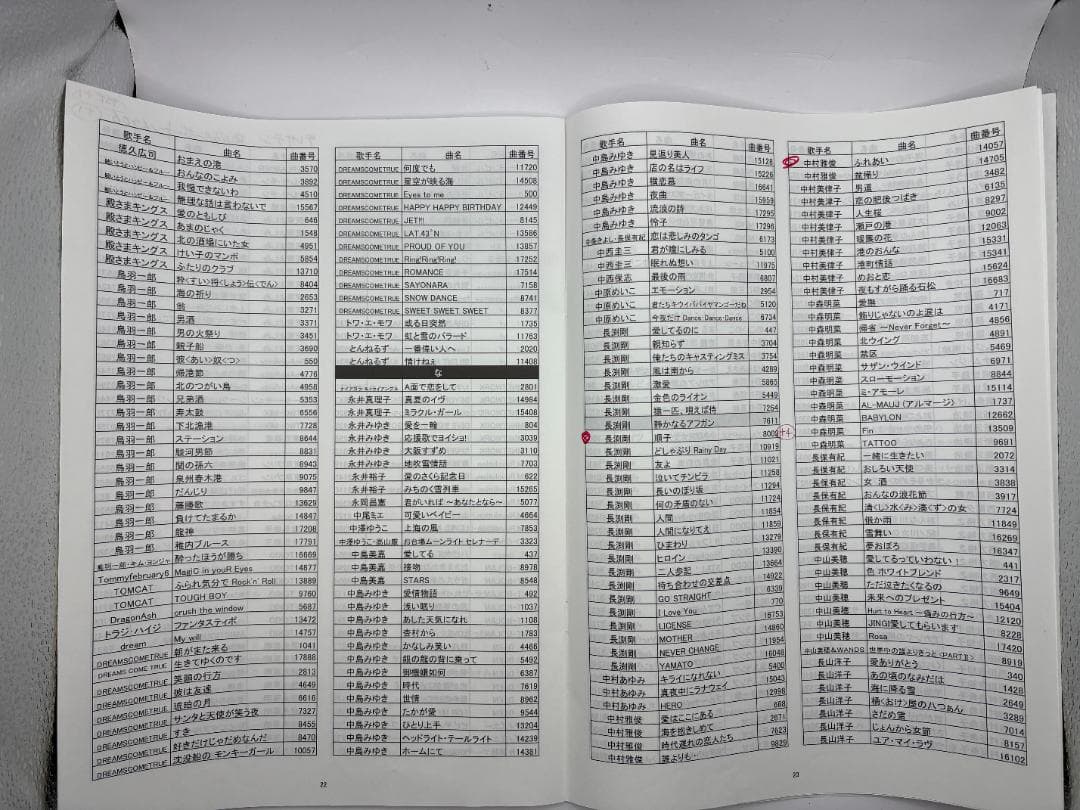 歌手名 曲名 曲番号
徳久広司 おまえの港 3570
敏いとうとハッピー&ブルー おんなのこよみ 3892
敏いとうとハッピー&ブルー 我慢できないわ 4510
敏いとうとハッピー&ブルー 無理な話は言わないで 15567
殿さまキングス 愛のともしび 646
殿さまキングス あまのじゃく 1548
殿さまキングス 北の酒場にいた女 4951
殿さまキングス けい子のマンボ 5854
殿さまキングス ふたりのクラブ 13710
鳥羽一郎 粋(すい)将(しょう)伝(でん) 8404
鳥羽一郎 海の祈り 2653
鳥羽一郎 翁 3271
鳥羽一郎 男酒 3371
鳥羽一郎 男の火祭り 3451
鳥羽一郎 親子船 3690
鳥羽一郎 彼(あい)奴(つ) 550
鳥羽一郎 帰港節 4776
鳥羽一郎 北のつがい鳥 4958
鳥羽一郎 兄弟酒 5353
鳥羽一郎 寿太鼓 6556
鳥羽一郎 下北漁港 7728
鳥羽一郎 ステーション 8644
鳥羽一郎 駿河男節 8831
鳥羽一郎 関の孫六 8943
鳥羽一郎 泉州春木港 9075
鳥羽一郎 だんじり 9847
鳥羽一郎 藤勝歌 13629
鳥羽一郎 負けてたまるか 14847
鳥羽一郎 龍神 17208
鳥羽一郎 稚内ブルース 17791
鳥羽一郎・キム・ヨンジャ 酔ったほうが勝ち 16669
Tommyfebruary6 MagiC in youR Eyes 14877
TOMCAT ふられ気分でRock'n' Roll 13889
TOMCAT TOUGH BOY 9760
DragonAsh crush the window 5687
トラジ・ハイジ ファンタスティポ 13472
dream My will 14757
DREAMSCOMETRUE 朝がまた来る 1041
DREAMS COME TRUE 生きてゆくのです 17888
DREAMSCOMETRUE 笑顔の行方 2813
DREAMSCOMETRUE 彼は友達 4649
DREAMSCOMETRUE 琥珀の月 6616
DREAMSCOMETRUE サンタと天使が笑う夜 7327
DREAMSCOMETRUE すき 8455
DREAMSCOMETRUE 好きだけじゃだめなんだ 8470
DREAMSCOMETRUE 沈没船のモンキーガール 10057
歌手名 曲名 曲番号
DREAMSCOMETRUE 何度でも 11720
DREAMSCOMETRUE 星空が映る海 14508
DREAMSCOMETRUE Eyes to me 500
DREAMSCOMETRUE HAPPY HAPPY BIRTHDAY 12449
DREAMSCOMETRUE JET!!! 8145
DREAMSCOMETRUE LAT.43゜N 13586
DREAMSCOMETRUE PROUD OF YOU 13857
DREAMSCOMETRUE Ring!Ring!Ring! 17252
DREAMSCOMETRUE ROMANCE 17514
DREAMSCOMETRUE SAYONARA 7158
DREAMSCOMETRUE SNOW DANCE 8741
DREAMSCOMETRUE SWEET SWEET SWEET 8377
トワ・エ・モワ 或る日突然 1735
トワ・エ・モワ 虹と雪のバラード 11763
とんねるず 一番偉い人へ 2020
とんねるず 情けねぇ 11408
な
ナイアガラ・トライアングル A面で恋をして 2801
永井真理子 真夏のイヴ 14984
永井真理子 ミラクル・ガール 15408
永井みゆき 愛を一輪 804
永井みゆき 応援歌でヨイショ! 3039
永井みゆき 大阪すずめ 3110
永井みゆき 地吹雪情話 7703
永井裕子 愛のさくら記念日 622
永井裕子 みちのく雪列車 15265
永岡昌憲 君がいれば ~あなたとなら~ 5077
中尾ミエ 可愛いベイビー 4664
中澤ゆうこ 上海の風 7853
中澤ゆうこ・高山厳 お台場ムーンライト セレナーデ 3323
中島美嘉 愛してる 437
中島美嘉 接吻 8978
中島美嘉 STARS 8548
中島みゆき 愛情物語 402
中島みゆき 浅い眠り 1037
中島みゆき あした天気になれ 1108
中島みゆき 杏村から 1783
中島みゆき かなしみ笑い 4466
中島みゆき 銀の龍の背に乗って 5492
中島みゆき 御機嫌如何 6387
中島みゆき 時代 7619
中島みゆき 世情 8962
中島みゆき たかが愛 9544
中島みゆき ひとり上手 13204
中島みゆき ヘッドライト・テールライト 14239
中島みゆき ホームにて 14381
22
歌手名 曲名 曲番号
中島みゆき 見返り美人 15128
中島みゆき 店の名はライフ 15226
中島みゆき 横恋慕 16641
中島みゆき 夜曲 15959
中島みゆき 流浪の詩 17295
中島みゆき 怜子 17296
中条きよし・長保有紀 恋は悲しみのタンゴ 6173
中西圭三 君が瞳にしみる 5100
中西圭三 眠れぬ想い 11975
中西保志 最後の雨 4807
中原めいこ エモーション 2954
中原めいこ 君たちキウイ・パパイヤ・マンゴーだね 5120
中原めいこ 今夜だけ Dance・Dance・Dance 6734
長渕剛 愛してるのに 447
長渕剛 親知らず 3704
長渕剛 俺たちのキャスティングミス 3754
長渕剛 風は南から 4289
長渕剛 激愛 5865
長渕剛 金色のライオン 5449
長渕剛 猿一匹、唄えば侍 7254
長渕剛 静かなるアフガン 7611
長渕剛 順子 8002 +4
長渕剛 どしゃぶり Rainy Day 10919
長渕剛 友よ 11021
長渕剛 泣いてチンピラ 11258
長渕剛 長いのぼり坂 11294
長渕剛 何の矛盾のない 11724
長渕剛 人間 11854
長渕剛 人間になりてえ 11859
長渕剛 ひまわり 13279
長渕剛 ヒロイン 13390
長渕剛 二人歩記 13664
長渕剛 待ち合わせの交差点 14922
長渕剛 GO STRAIGHT 6339
長渕剛 I Love You 770
長渕剛 LICENSE 16753
長渕剛 MOTHER 14860
長渕剛 NEVER CHANGE 11954
長渕剛 YAMATO 16048
中村あゆみ キライになれない 5400
中村あゆみ 真夜中にランナウェイ 15043
中村あゆみ HERO 12998
中村雅俊 愛はここにある 668
中村雅俊 海を抱きしめて 2671
中村雅俊 時代遅れの恋人たち 7623
中村雅俊 誰よりも… 9829
歌手名 曲名 曲番号
中村雅俊 ふれあい 14057
中村雅俊 盆帰り 14705
中村美律子 男道 3482
中村美律子 恋の肥後つばき 6135
中村美律子 人生桜 8297
中村美律子 瀬戸の港 9002
中村美律子 媛簾の花 12063
中村美律子 港のおんな 15331
中村美律子 港町情話 15341
中村美律子 めおと恋 15624
中村美律子 夜もすがら踊る石松 16683
中森明菜 愛撫 717
中森明菜 飾りじゃないのよ涙は 4171
中森明菜 帰省 ~Never Forget~ 4856
中森明菜 北ウイング 4891
中森明菜 禁区 5469
中森明菜 サザン・ウインド 6971
中森明菜 スローモーション 8844
中森明菜 ミ・アモーレ 15114
中森明菜 AL-MAUJ (アルマージ) 1737
中森明菜 BABYLON 12662
中森明菜 Fin 13509
中森明菜 TATTOO 9691
長保有紀 一緒に生きたい 2072
長保有紀 おしろい天使 3314
長保有紀 女 酒 3838
長保有紀 おんなの浪花節 3917
長保有紀 清(し)水(みず)湊(くず)の女 7724
長保有紀 俄か雨 11849
長保有紀 雪舞い 16269
長保有紀 夢おぼろ 16347
中山美穂 愛してるっていわない! 441
中山美穂 色・ホワイトブレンド 2317
中山美穂 ただ泣きたくなるの 9649
中山美穂 未来へのプレゼント 15404
中山美穂 Hurt to Heart ~痛みの行方~ 12120
中山美穂 JINGI愛してもらいます 8228
中山美穂 Rosa 17420
中山美穂&WANDS 世界中の誰よりきっと<PARTⅡ> 8919
長山洋子 愛ありがとう 340
長山洋子 あの頃のなみだは 1428
長山洋子 海に降る雪 2649
長山洋子 桶(おけ)屋の八つぁん 3289
長山洋子 さだめ雪 7014
長山洋子 じょんから女節 8157
長山洋子 ユア・マイ・ラヴ 16102
23